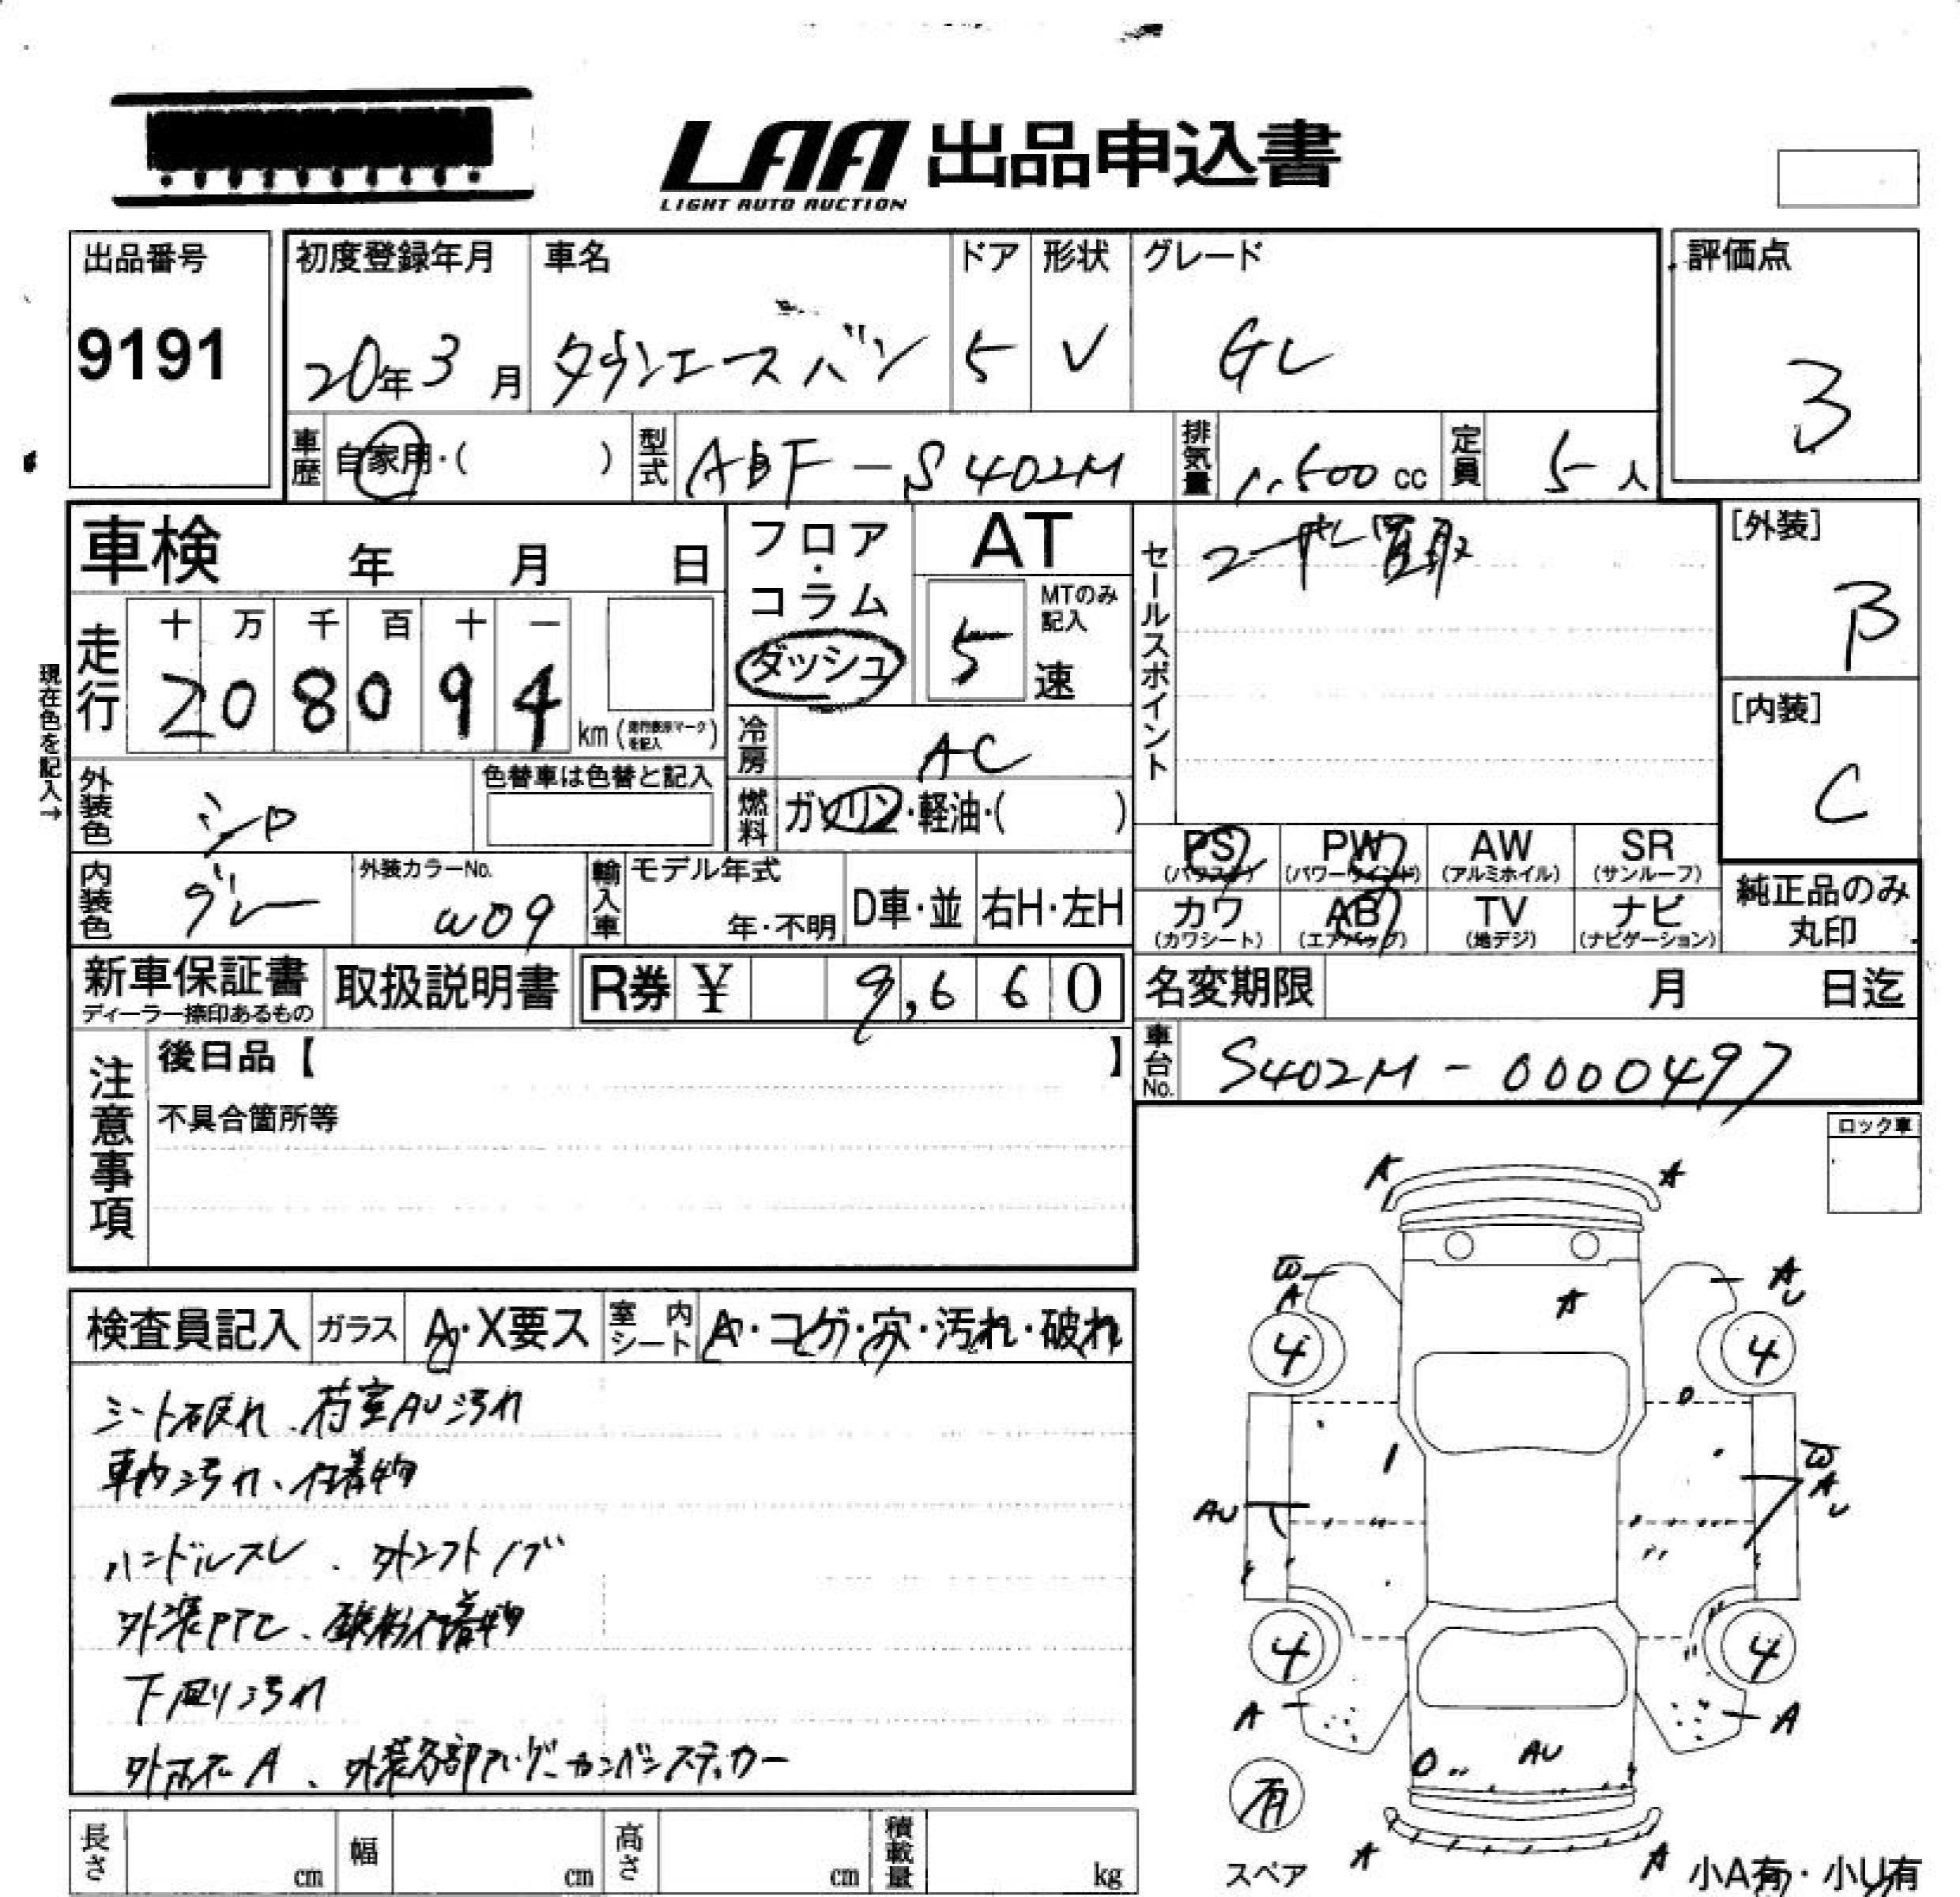 LAA 出品申込書
LIGHT AUTO AUCTION
出品番号
9191
初度登録年月
20年3月
車名
タウンエースバン
ドア
5
形状
V
グレード
GL
評価点
3
車歴
自家用・( )
型式
ABF-S402M
排気量
1,500cc
定員
5人
車検 年 月 日
フロア・コラム
ダッシュ
AT
MTのみ記入
5速
セールスポイント
ユーザー買取
[外装]
B
[内装]
C
現在色を記入→
走行
十 万 千 百 十 一
2 0 8 0 9 4
km
冷房
AC
外装色
シロ
色替車は色替と記入
燃料
ガソリン・軽油・( )
PS
(パワステ)
PW
(パワーウインド)
AW
(アルミホイル)
SR
(サンルーフ)
内装色
グレー
外装カラーNo.
W09
輸入車
モデル年式
年・不明
D車・並
右H・左H
カワ
(カワシート)
AB
(エアバッグ)
TV
(地デジ)
ナビ
(ナビゲーション)
純正品のみ
丸印
新車保証書
ディーラー捺印あるもの
取扱説明書
R券 ¥ 9,660
名変期限 月 日迄
車台No.
S402M-0000497
注意事項
後日品【 】
不具合箇所等
ロック車
検査員記入
ガラス
A・X要ス
室内シート
A・コゲ・穴・汚れ・破れ
シート破れ、荷室AU汚れ
車内汚れ、付着物
ハンドルスレ、外シフトノブ
下回り汚れ
A A
W A
A U
A
4 4
W A U
AU
4 4
A A
AU
有
スペア
A A
小A有・小U有
長さ cm
幅 cm
高さ cm
積載量 kg